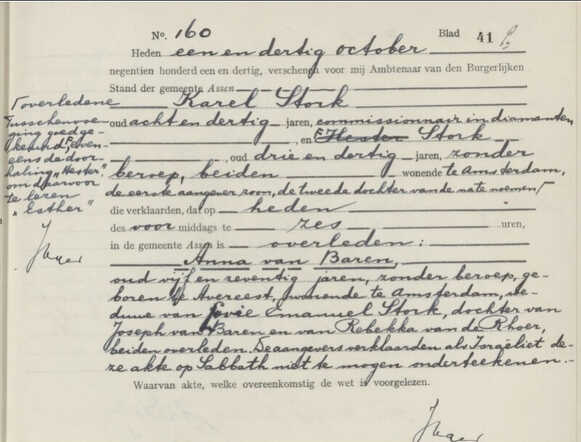 No. 160 Blad 41
Heden een en dertig october
negentien honderd een en dertig, verscheen voor mij Ambtenaar van den Burgerlijken
Stand der gemeente Assen
Karel Stork
oud acht en dertig jaren, commissionnair in diamanten
, en Hester Stork
, oud drie en dertig jaren, zonder
beroep, beiden wonende te Amsterdam,
de eerste aangever zoon, de tweede dochter van de na te noemen
die verklaarden, dat op heden
des voormiddags te zes uren,
in de gemeente Assen is overleden:
Anna van Baren,
oud vijf en zeventig jaren, zonder beroep, ge-
boren te Avereest, wonende te Amsterdam, we-
duwe van Emanuel Stork, dochter van
Joseph van Baren en van Rebekka van de Rhoer,
beiden overleden. De aangevers verklaarden als Israëliet de-
ze akte op Sabbath niet te mogen onderteekenen.-
Waarvan akte, welke overeenkomstig de wet is voorgelezen.
overledene
Tusschenvoe-
ging goedge-
keurd, even-
eens de door-
haling "Hester"
om daarvoor
te lezen
"Esther"